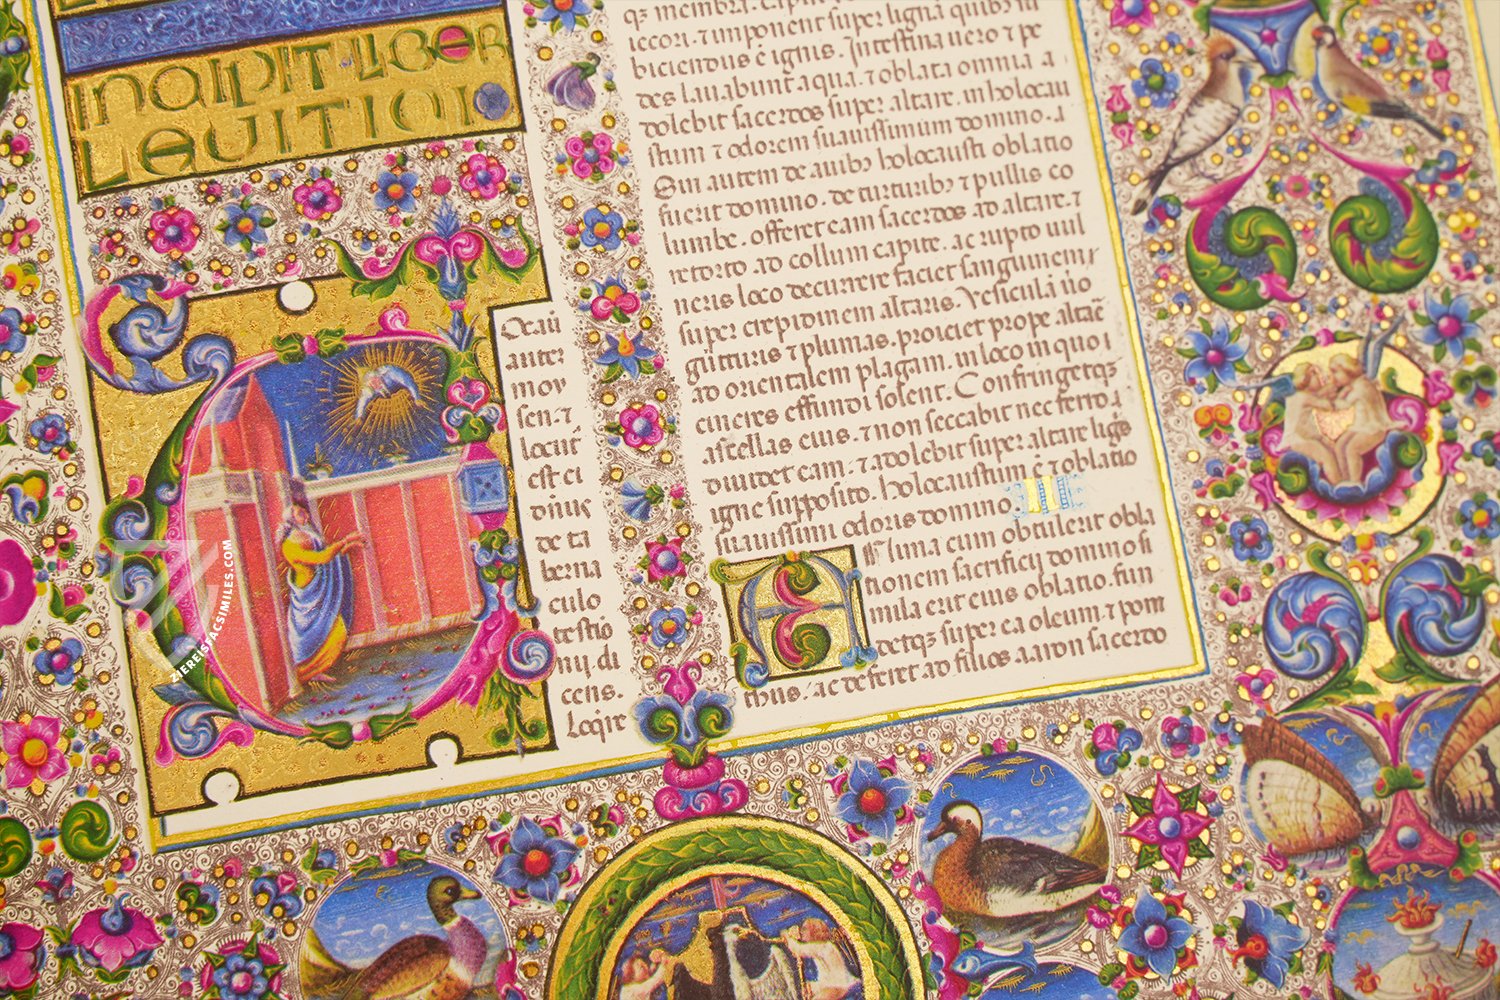 INCIPIT LIBER
LEVITICI
ocauit
autez
moy
sen · ⁊
locut᷒
est ei
dñus
de ta
berna
culo
testio
nij · di
cens ·
Loq̃re
qꝫ membra · caput
ieccori · ⁊ imponent super ligna quibꝫ
biciendus ẽ ignis · Intestina uero ⁊ pe
des lauabunt aqua · ⁊ oblata omnia a
dolebit sacerdos super altare · in holocau
stum ⁊ odorem suauissimum domino · a
Sin autem de auibꝫ holocausti oblatio
fuerit domino · de turturibꝫ ⁊ pullis co
lumbe · offeret eam sacerdos ad altare · ⁊
retorto ad collum capite · ac rupto uul
neris loco decurrere faciet sanguinem
super crepidinem altaris · Vesiculã uo
gutturis ⁊ plumas · proiciet prope altaẽ
ad orientalem plagam · in loco in quo i
cineres effundi solent · Confringetqꝫ
ascellas eius · ⁊ non seccabit nec ferro ·
diuidet eam · ⁊ adolebit super altare ligis
igne supposito · holocaustum ẽ ⁊ oblatio
suauissimi odoris domino II
Anima cum obtulerit obla
tionem sacrificij domino si
mila erit eius oblatio · fun
detqꝫ super ea oleum · ⁊ pont
thus · ac deferet ad filios aaron sacerdo
ZIEREISFACSIMILES.COM